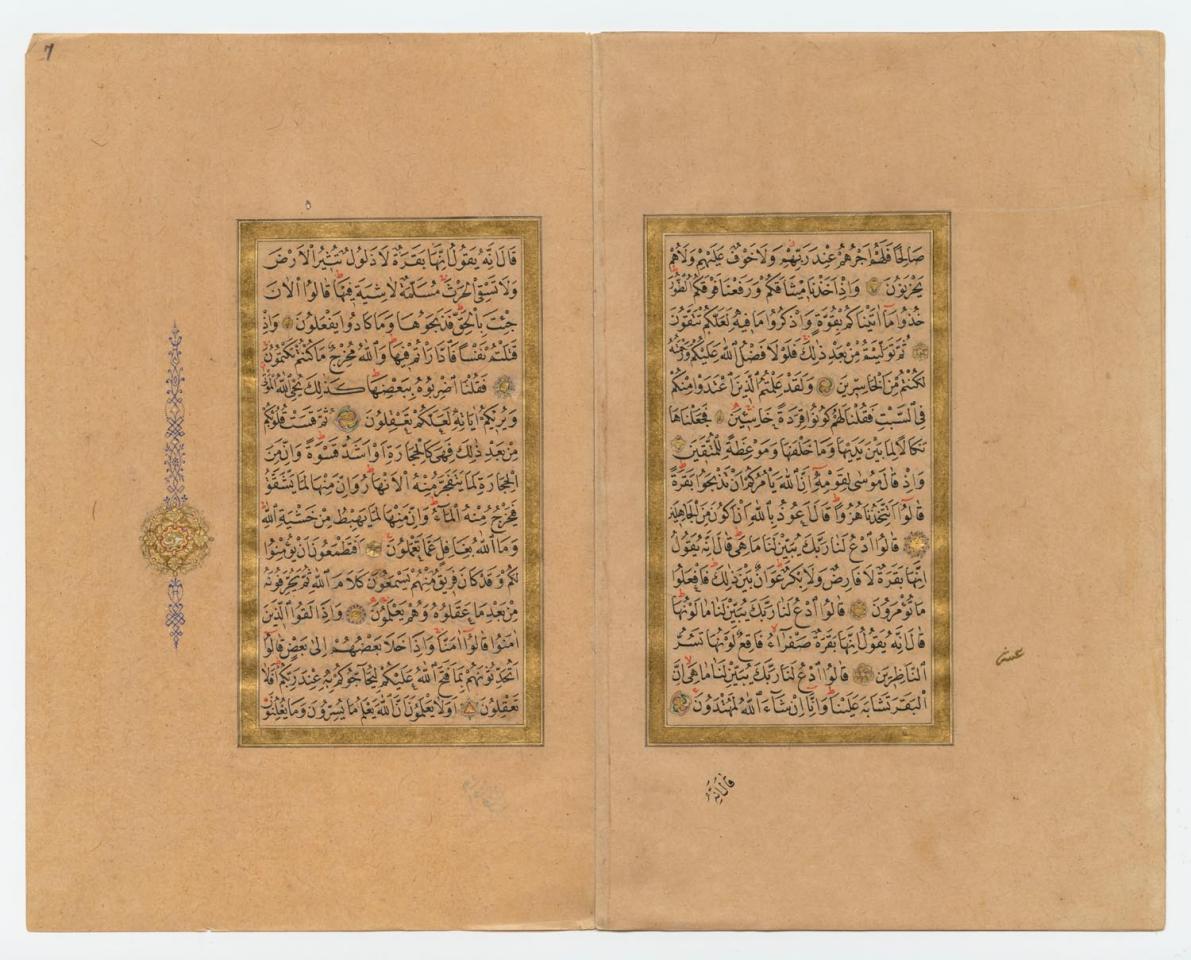 صَالِحًا فَلَهُمْ اَجْرُهُمْ عِنْدَ رَبِّهِمْ وَلَا خَوْفٌ عَلَيْهِمْ وَلَا هُمْ
يَحْزَنُونَ وَاِذْ اَخَذْنَا مِيثَاقَكُمْ وَرَفَعْنَا فَوْقَكُمُ الطُّورَ
خُذُوا مَآ اٰتَيْنَاكُمْ بِقُوَّةٍ وَاذْكُرُوا مَا فِيهِ لَعَلَّكُمْ تَتَّقُونَ
ثُمَّ تَوَلَّيْتُمْ مِنْ بَعْدِ ذٰلِكَ فَلَوْلَا فَضْلُ اللّٰهِ عَلَيْكُمْ وَرَحْمَتُهُ
لَكُنْتُمْ مِنَ الْخَاسِرِينَ وَلَقَدْ عَلِمْتُمُ الَّذِينَ اعْتَدَوْا مِنْكُمْ
فِى السَّبْتِ فَقُلْنَا لَهُمْ كُونُوا قِرَدَةً خَاسِئِينَ فَجَعَلْنَاهَا
نَكَالًا لِمَا بَيْنَ يَدَيْهَا وَمَا خَلْفَهَا وَمَوْعِظَةً لِلْمُتَّقِينَ
وَاِذْ قَالَ مُوسٰى لِقَوْمِهِ اِنَّ اللّٰهَ يَاْمُرُكُمْ اَنْ تَذْبَحُوا بَقَرَةً
قَالُوا اَتَتَّخِذُنَا هُزُوًا قَالَ اَعُوذُ بِاللّٰهِ اَنْ اَكُونَ مِنَ الْجَاهِلِينَ
قَالُوا ادْعُ لَنَا رَبَّكَ يُبَيِّنْ لَنَا مَا هِىَ قَالَ اِنَّهُ يَقُولُ
اِنَّهَا بَقَرَةٌ لَا فَارِضٌ وَلَا بِكْرٌ عَوَانٌ بَيْنَ ذٰلِكَ فَافْعَلُوا
مَا تُؤْمَرُونَ قَالُوا ادْعُ لَنَا رَبَّكَ يُبَيِّنْ لَنَا مَا لَوْنُهَا
قَالَ اِنَّهُ يَقُولُ اِنَّهَا بَقَرَةٌ صَفْرَآءُ فَاقِعٌ لَوْنُهَا تَسُرُّ
النَّاظِرِينَ قَالُوا ادْعُ لَنَا رَبَّكَ يُبَيِّنْ لَنَا مَا هِىَ اِنَّ
الْبَقَرَ تَشَابَهَ عَلَيْنَا وَاِنَّا اِنْ شَآءَ اللّٰهُ لَمُهْتَدُونَ
عشر
قَالَ اِنَّهُ
7
قَالَ اِنَّهُ يَقُولُ اِنَّهَا بَقَرَةٌ لَا ذَلُولٌ تُثِيرُ الْاَرْضَ
وَلَا تَسْقِى الْحَرْثَ مُسَلَّمَةٌ لَا شِيَةَ فِيهَا قَالُوا الْاٰنَ
جِئْتَ بِالْحَقِّ فَذَبَحُوهَا وَمَا كَادُوا يَفْعَلُونَ وَاِذْ
قَتَلْتُمْ نَفْسًا فَادّٰرَاْتُمْ فِيهَا وَاللّٰهُ مُخْرِجٌ مَا كُنْتُمْ تَكْتُمُونَ
فَقُلْنَا اضْرِبُوهُ بِبَعْضِهَا كَذٰلِكَ يُحْىِ اللّٰهُ الْمَوْتٰى
وَيُرِيكُمْ اٰيَاتِهِ لَعَلَّكُمْ تَعْقِلُونَ ثُمَّ قَسَتْ قُلُوبُكُمْ
مِنْ بَعْدِ ذٰلِكَ فَهِىَ كَالْحِجَارَةِ اَوْ اَشَدُّ قَسْوَةً وَاِنَّ مِنَ
الْحِجَارَةِ لَمَا يَتَفَجَّرُ مِنْهُ الْاَنْهَارُ وَاِنَّ مِنْهَا لَمَا يَشَّقَّقُ
فَيَخْرُجُ مِنْهُ الْمَآءُ وَاِنَّ مِنْهَا لَمَا يَهْبِطُ مِنْ خَشْيَةِ اللّٰهِ
وَمَا اللّٰهُ بِغَافِلٍ عَمَّا تَعْمَلُونَ اَفَتَطْمَعُونَ اَنْ يُؤْمِنُوا
لَكُمْ وَقَدْ كَانَ فَرِيقٌ مِنْهُمْ يَسْمَعُونَ كَلَامَ اللّٰهِ ثُمَّ يُحَرِّفُونَهُ
مِنْ بَعْدِ مَا عَقَلُوهُ وَهُمْ يَعْلَمُونَ وَاِذَا لَقُوا الَّذِينَ
اٰمَنُوا قَالُوا اٰمَنَّا وَاِذَا خَلَا بَعْضُهُمْ اِلٰى بَعْضٍ قَالُوا
اَتُحَدِّثُونَهُمْ بِمَا فَتَحَ اللّٰهُ عَلَيْكُمْ لِيُحَآجُّوكُمْ بِهِ عِنْدَ رَبِّكُمْ اَفَلَا
تَعْقِلُونَ اَوَلَا يَعْلَمُونَ اَنَّ اللّٰهَ يَعْلَمُ مَا يُسِرُّونَ وَمَا يُعْلِنُونَ